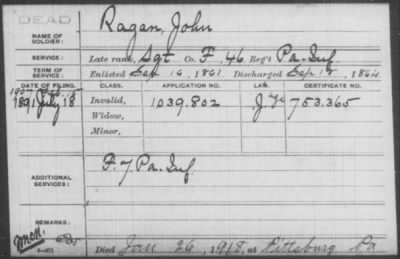 DEAD
NAME OF SOLDIER: Ragan, John
SERVICE: Late rank, Sgt Co. F, 46 Reg't Pa. Inf.
TERM OF SERVICE: Enlisted Sep 16, 1861 Discharged Sep 18, 1864
DATE OF FILING. CLASS. APPLICATION NO. LAW. CERTIFICATE NO.
1891 July 18 Invalid, 1039.802 753.365
Widow,
Minor,
ADDITIONAL SERVICES: F. 7 Pa. Inf.
REMARKS:
Died Jan 26, 1918, at Pittsburg Pa